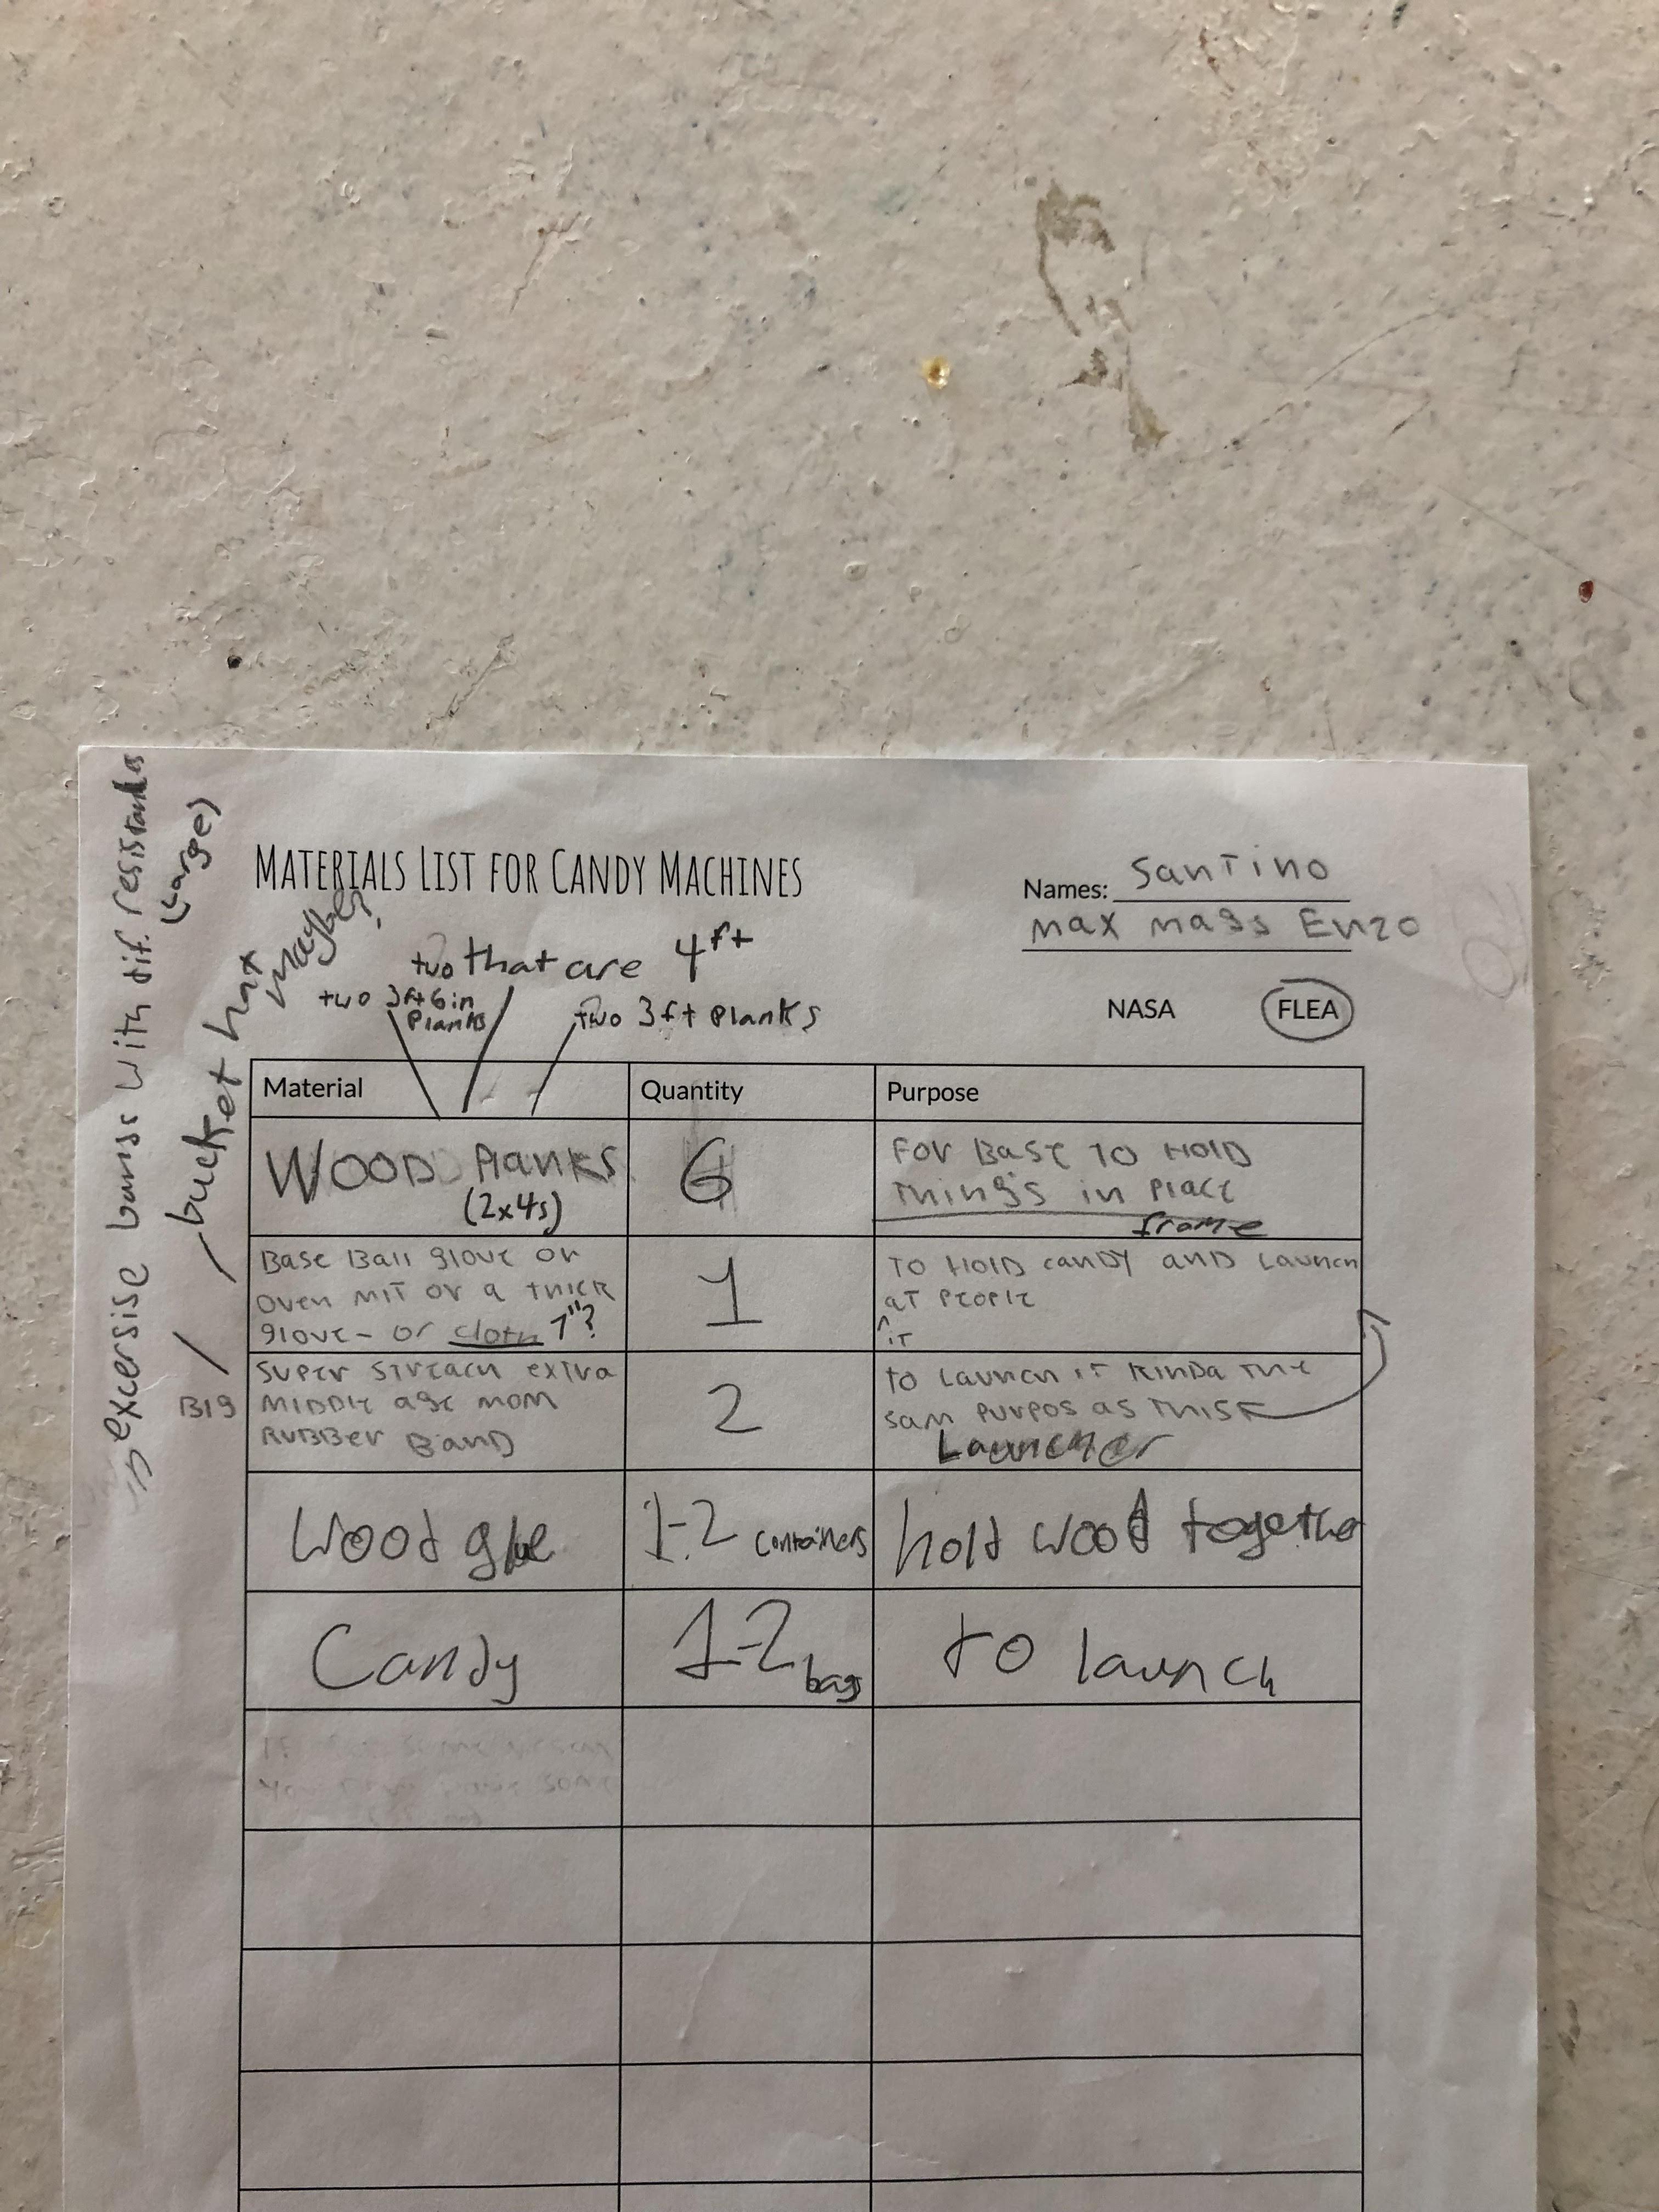 MATERIALS LIST FOR CANDY MACHINES
Names: SanTino
max mass Enzo
NASA FLEA
two that are 4ft
two 3ft 6in
Planks
two 3ft Planks
bucket hat
maybe?
excersise bands with dif. resistandes
(Large)
Material Quantity Purpose
WOOD Planks
(2x4s)
6
For Base TO HOLD
Things in Place
frame
Base Ball glove or
oven mit or a thick
glove - or cloth 1"?
1
TO HOLD candy AND Launch
aT PeoPle
^iT
BIg
Super Streach extra
MIDDle age mom
RUBBer BanD
2
to Launch iT KinDa The
sam PurPos as THIS
Launcher
Wood glue
1-2 containers
hold wood together
Candy
1-2 bags
to launch